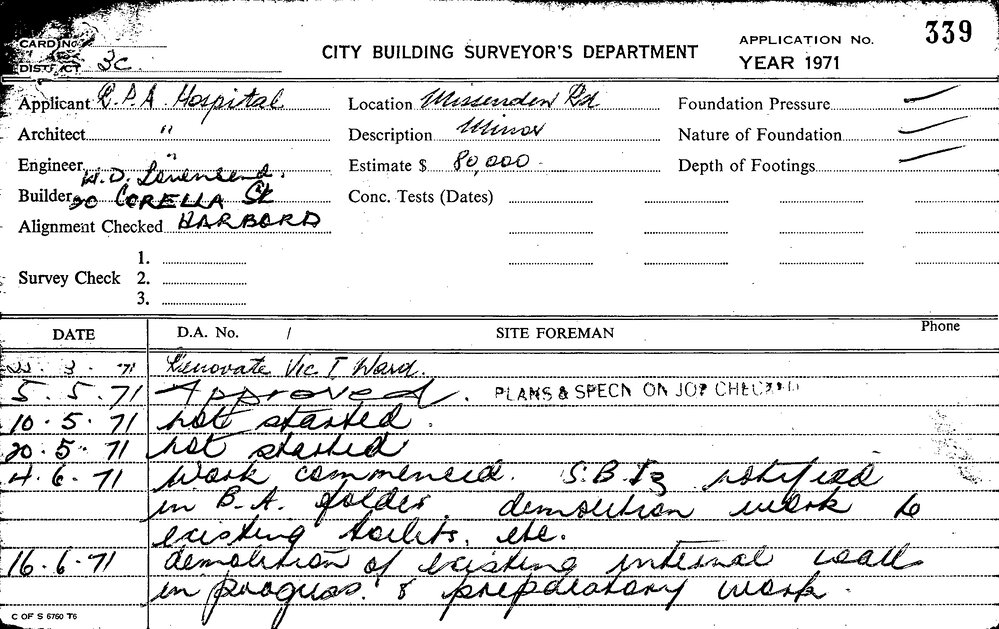 CARD INO.
DISTRICT 3C
CITY BUILDING SURVEYOR'S DEPARTMENT
APPLICATION No. 339
YEAR 1971
Applicant R.P.A. Hospital
Location Missenden Rd
Foundation Pressure
Architect "
Description Minor
Nature of Foundation
Engineer "
Estimate $ 80,000
Depth of Footings
H.D.
Builder 20 CORELLA St
Conc. Tests (Dates)
Alignment Checked HARBORD
Survey Check 1.
2.
3.
DATE D.A. No. / SITE FOREMAN Phone
3. 71 Renovate Vic I Ward.
5. 5. 71 Approved. PLANS & SPECN ON JOB CHECKED
10. 5. 71 not started.
20. 5. 71 not started
4. 6. 71 Work commenced. notified
in B.A. folder. demolition work to
existing toilets, etc.
16. 6. 71 demolition of existing internal walls
in progress. & preparatory work.
C OF S 6760 T6